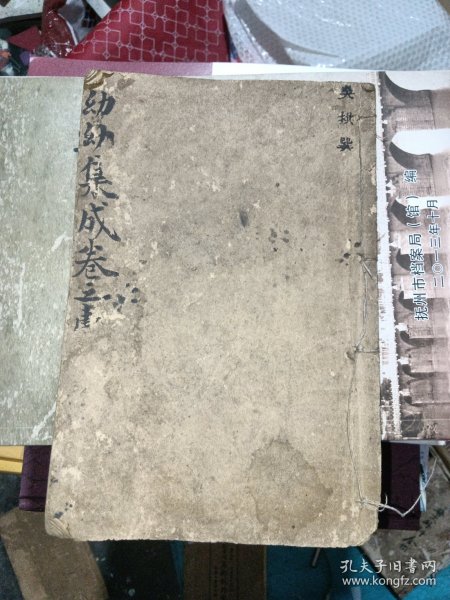 幼幼集成卷
抚州市档案局（馆） 编
二〇一三年十月
孔夫子旧书网
www.kongfz.com